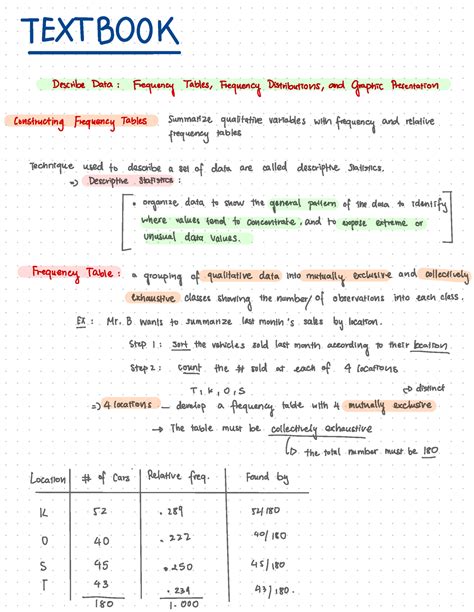 TEXTBOOK
Describe Data: Frequency Tables, Frequency Distributions, and Graphic Presentation
Constructing Frequency Tables Summarize qualitative variables with frequency and relative
frequency tables
Technique used to describe a set of data are called descriptive statistics.
⇒ Descriptive Statistics:
• organize data to show the general pattern of the data to identify
where values tend to concentrate, and to expose extreme or
unusual data values.
Frequency Table: a grouping of qualitative data into mutually exclusive and collectively
exhaustive classes showing the number/ of observations into each class.
EX: Mr. B wants to summarize last month's sales by location.
Step 1: sort the vehicles sold last month according to their location
Step 2: count the # sold at each of 4 locations
T, K, O, S ↳ distinct
⇒ 4 locations — develop a frequency table with 4 mutually exclusive
→ The table must be collectively exhaustive
↳ the total number must be 180
Location # of Cars Relative freq. Found by
K 52 .289 52/180
O 40 .222 40/180
S 45 .250 45/180
T 43 .239 43/180.
180 1.000